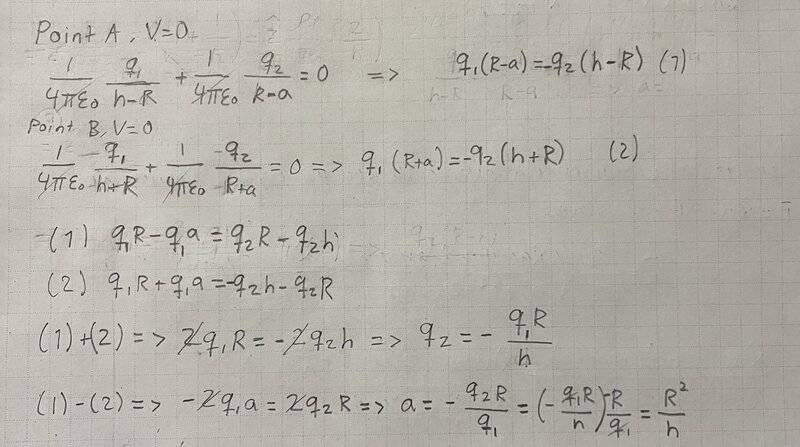 Point A, V=0
1/4πε₀ q₁/h-R + 1/4πε₀ q₂/R-a = 0 => q₁(R-a)=-q₂(h-R) (1)
Point B, V=0
1/4πε₀ q₁/h+R + 1/4πε₀ q₂/R+a = 0 => q₁(R+a)=-q₂(h+R) (2)
(1) q₁R-q₁a=q₂R-q₂h
(2) q₁R+q₁a=-q₂h-q₂R
(1)+(2) => 2q₁R=-2q₂h => q₂=-q₁R/h
(1)-(2) => -2q₁a=2q₂R => a=-q₂R/q₁=(-q₁R/h)-R/q₁=R²/h